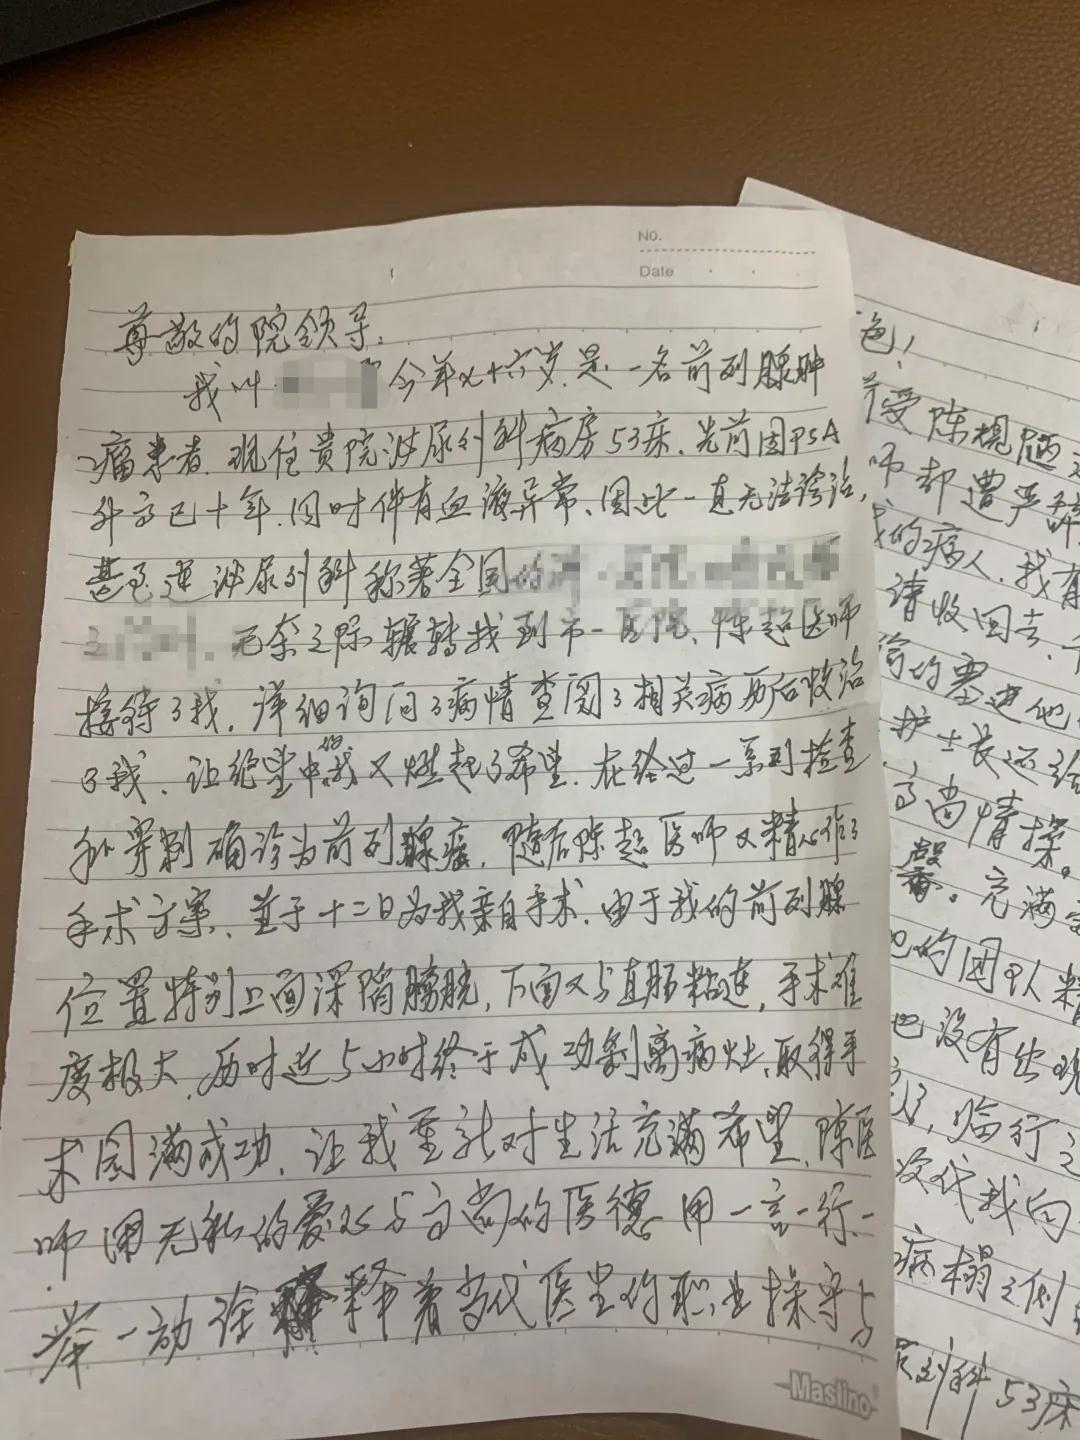 NO.
Date
尊敬的院领导：
我叫 今年七十六岁.是一名前列腺肿
瘤患者.现住贵院泌尿外科病房53床.先前因PSA
升高已十年.同时伴有血液异常、因此一直无法诊治,
甚至连泌尿外科称著全国的
无奈之际辗转找到市一医院.陈超医师
接待了我.详细询问了病情查阅了相关病历后收治
了我.让绝望中的我又燃起了希望.在经过一系列检查
和穿刺确诊为前列腺癌.随后陈超医师又精心作了
手术方案、并于十二日为我亲自手术.由于我的前列腺
位置特别上面深陷膀胱,下面又与直肠粘连,手术难
度极大.历时近5小时终于成功剥离病灶、取得手
术圆满成功.让我重新对生活充满希望.陈医
师用无私的爱心与高尚的医德 用一言一行.一
举一动诠释着当代医生的职业操守与
Maslino
色!
受陈规陋
师却遭严辞
我的病人.我有
请收回去.
的塞进他
护士长还给
高尚情操。
馨。充满
他的团队精
也没有出现
了,临行之
次代我向
病榻之侧
尿外科53床